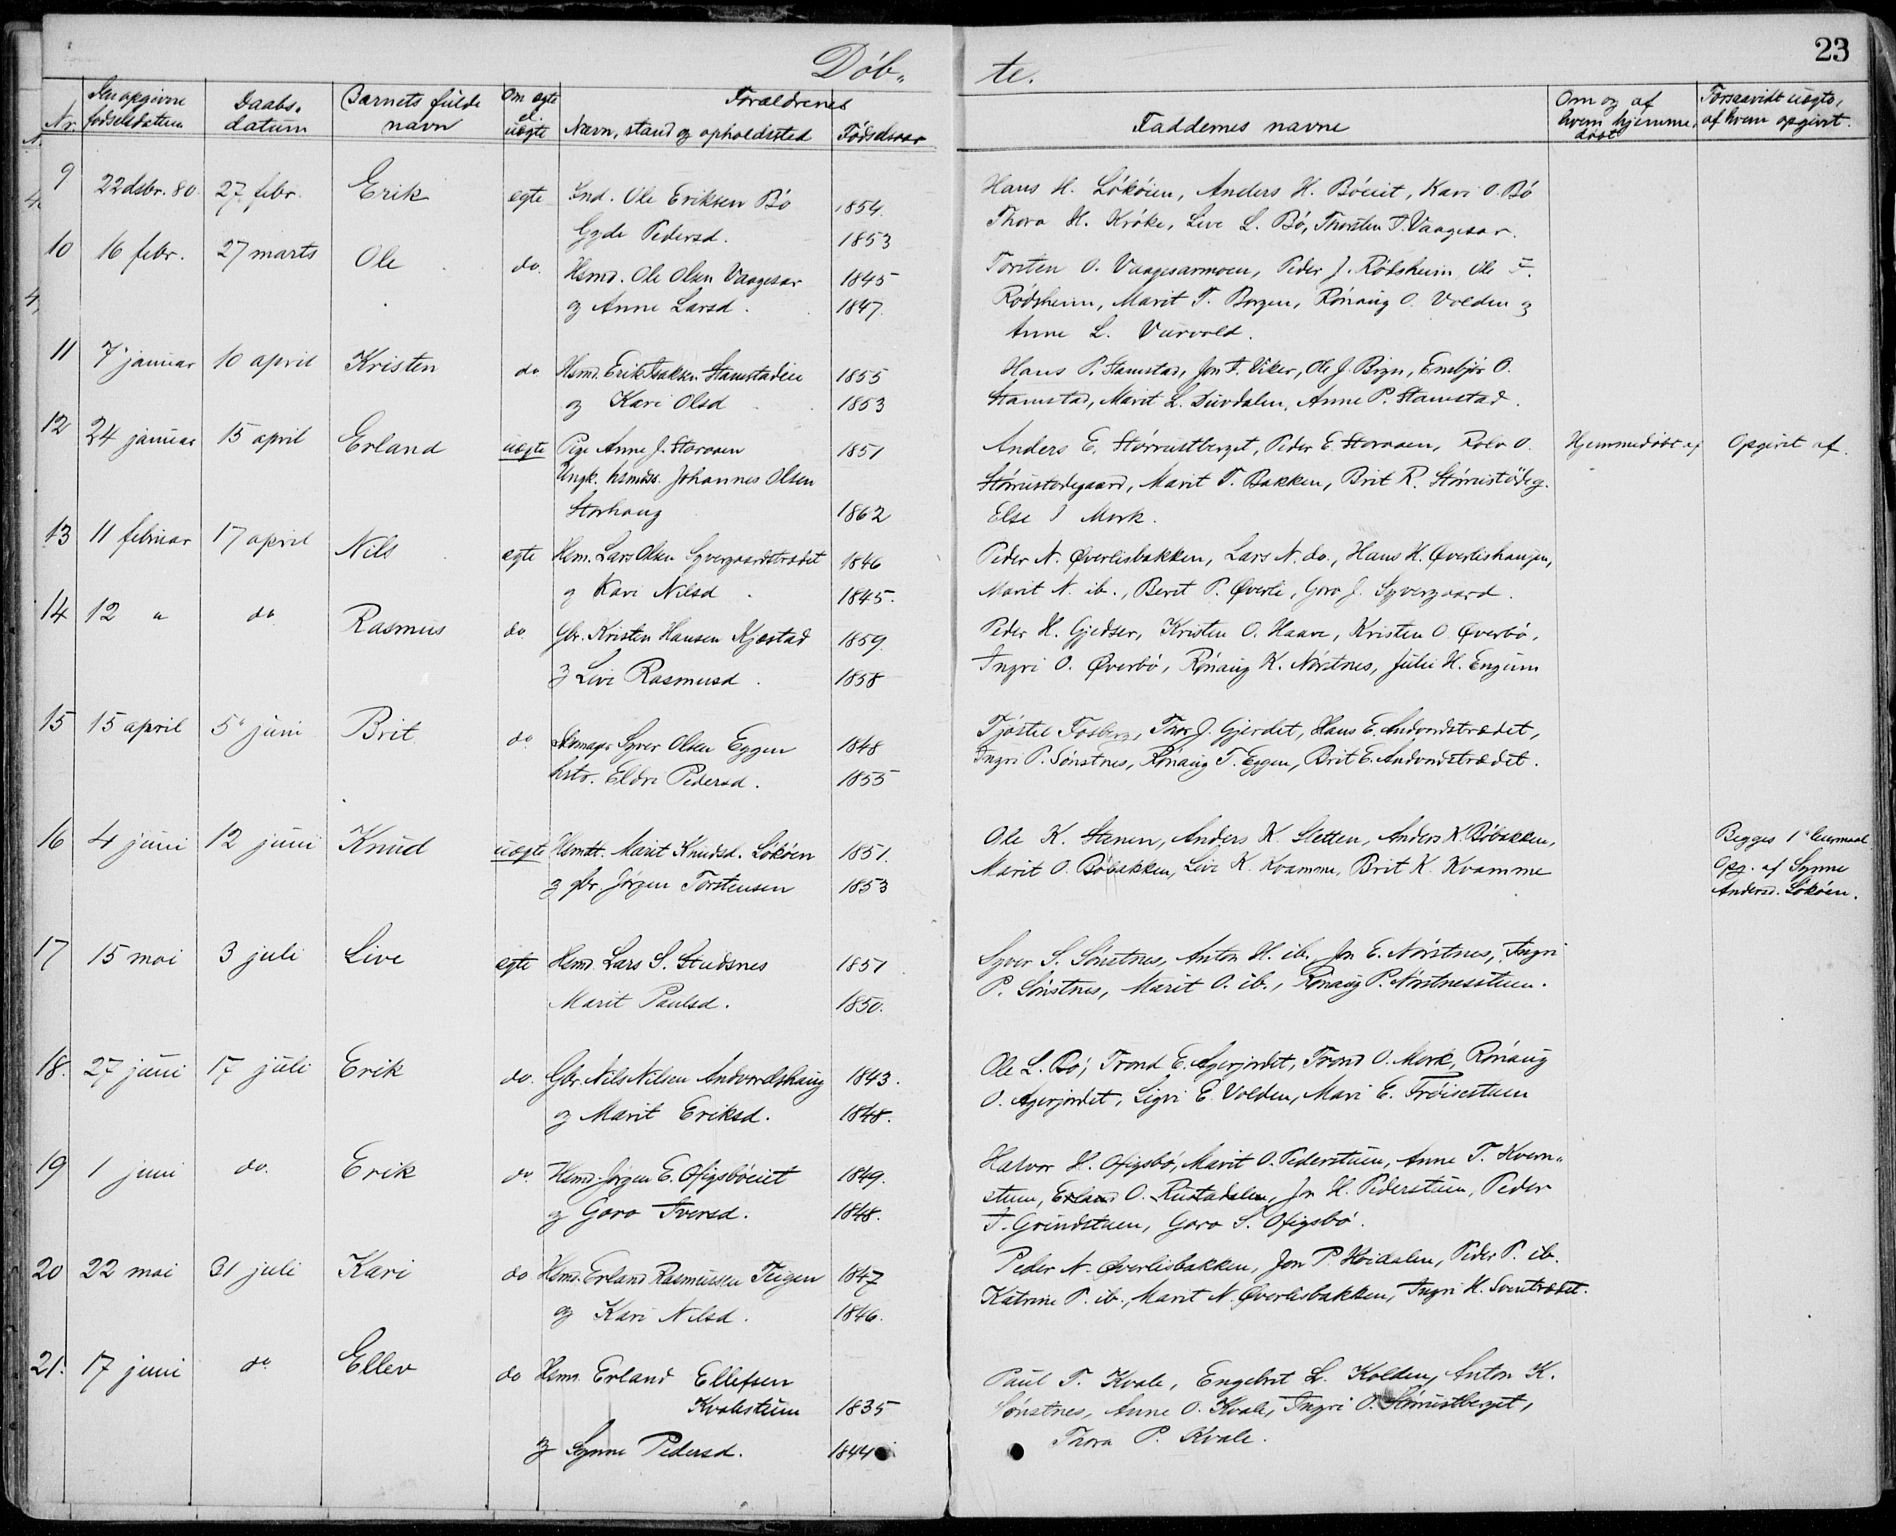 Döb„ te.
23
Nr.
Den opgivne fødselsdatum
Daabs„ datum
Barnets fulde navn
Om egte el. uegte
Forældrenes
Navn, stand og opholdssted
Fødselsaar
Faddernes navne
Om og af hvem hjemme„ døbt
Forsaavidt uegte, af hvem opgivet.
9 22 dsbr. 80. 27 febr. Erik egte Ind. Ole Eriksen Bö 1854. Hans H. Lököien, Anders H. Böeiet, Kari O. Bö
Gyda Pedersd. 1853 Thora H. Kröke, Live L. Bö, Thorsten T. Vaagesar.
10 16 febr. 27 marts Ole do. Hsmd. Ole Olsen Vaagesar 1845 Torsten O. Vaagesarmoen, Peder J. Rödsheim, Ole F.
og Anne Larsd. 1847. Rödsheim, Marit T. Borgen, Rönaug O. Volden og
Anne L. Vurvold.
11 7 januar 10 april Kristen do Hsmd. Erik Isaksen Stamstadeie 1855 Hans P. Stamstad, Jon T. Viker, Ole J. Bign, Embjör O.
og Kari Olsd 1853 Stamstad, Marit L. Duvdalen, Anne P. Stamstad.
12 24 januar 15 april Erland uegte Pige Anne J. Storaaen 1851 Anders E. Störrustberget, Peder E. Storaaen, Rolv O. Hjemmedöbt af Opgivet af.
Ungk. hsmdss. Johannes Olsen Störrustödegaard, Marit T. Bakken, Brit R. Störrustödeg.
Storhaug 1862 Else J Mork.
13 11 februar 17 april Nils egte Hsm. Lars Olsen Syvergaardstrædet 1846 Peder N. Øverlisbakken, Lars N. do., Hans H. Øverlishaugen,
og Kari Nilsd 1845. Marit N. ib., Berit P. Øverli, Goro J. Syvergaard.
14 12 „ do Rasmus do Gbr. Kristen Hansen Kjæstad 1859. Peder H. Gjedser, Kristen O. Haave, Kristen O. Øverbö,
og Live Rasmusd. 1858 Ingri O. Øverbö, Rönaug K. Nörstnes, Julie H. Engum
15 15 april 5 juni Brit do Skomager Syver Olsen Eggen 1848 Tjöstel Fosberg, Thor J. Gjerdet, Hans E. Andvordstrædet,
hstr. Eldri Pedersd. 1855 Ingri P. Sönstnes, Rönaug T. Eggen, Brit E. Andvordstrædet.
16 4 juni 12 juni Knud uegte Hsmdtt. Marit Knudsd. Lököen 1851. Ole K. Stenen, Anders K. Sletten, Anders K Böbakken, Begges 1 leiermaal
og gbr Jörgen Torstensen 1853 Marit O. Böbakken, Live K. Kvamme, Brit K. Kvamme Opg. af Synne
Andersd. Lököen.
17 15 mai 3 juli Live egte Hsmd. Lars S. Studsnes 1851 Syver S. Sönstnes, Anton H. ib., Jon E. Nörstnes, Ingri
Marit Paulsd. 1850. P. Sönstnes, Marit O. ib., Rönaug P. Nörstnesstuen.
18. 27 juni 17 juli Erik do. Gbr. Nils Nilsen Andvordshaug 1843. Ole L. Bö, Trond E. Agerjordet, Trond O. Mork, Rönaug
og Marit Eriksd. 1848. O. Agerjordet, Sigri E. Volden, Mari E. Fröisestuen
19 1 juni do. Erik do. Hsmd. Jörgen E. Ofigsböeiet 1849. Halvor H. Ofigsbö, Marit O. Pederstuen, Anne T. Kvern„
og Goro Iversd. 1848. stuen, Erland O. Rustadalen, Jon H. Pederstuen, Peder
T. Grindstuen, Goro S. Ofigsbö.
20 22 mai 31 juli Kari do Hsmd. Erland Rasmussen Teigen 1847 Peder N. Øverlisbakken, Jon P Höidalen, Peder P. ib.
og Kari Nilsd. 1846. Katrine P. ib., Marit N. Øverlisbakken, Ingri H. Sventrædet.
21. 17 juni do Ellev do Hsm. Erland Ellefsen Paul T. Kvale, Engebret L. Kolden, Anton K.
Kvalestuen 1835 Sönstnes, Anne O. Kvale, Ingri O. Störrustberget,
og Synne Pedersd. 1844 Thora P. Kvale.